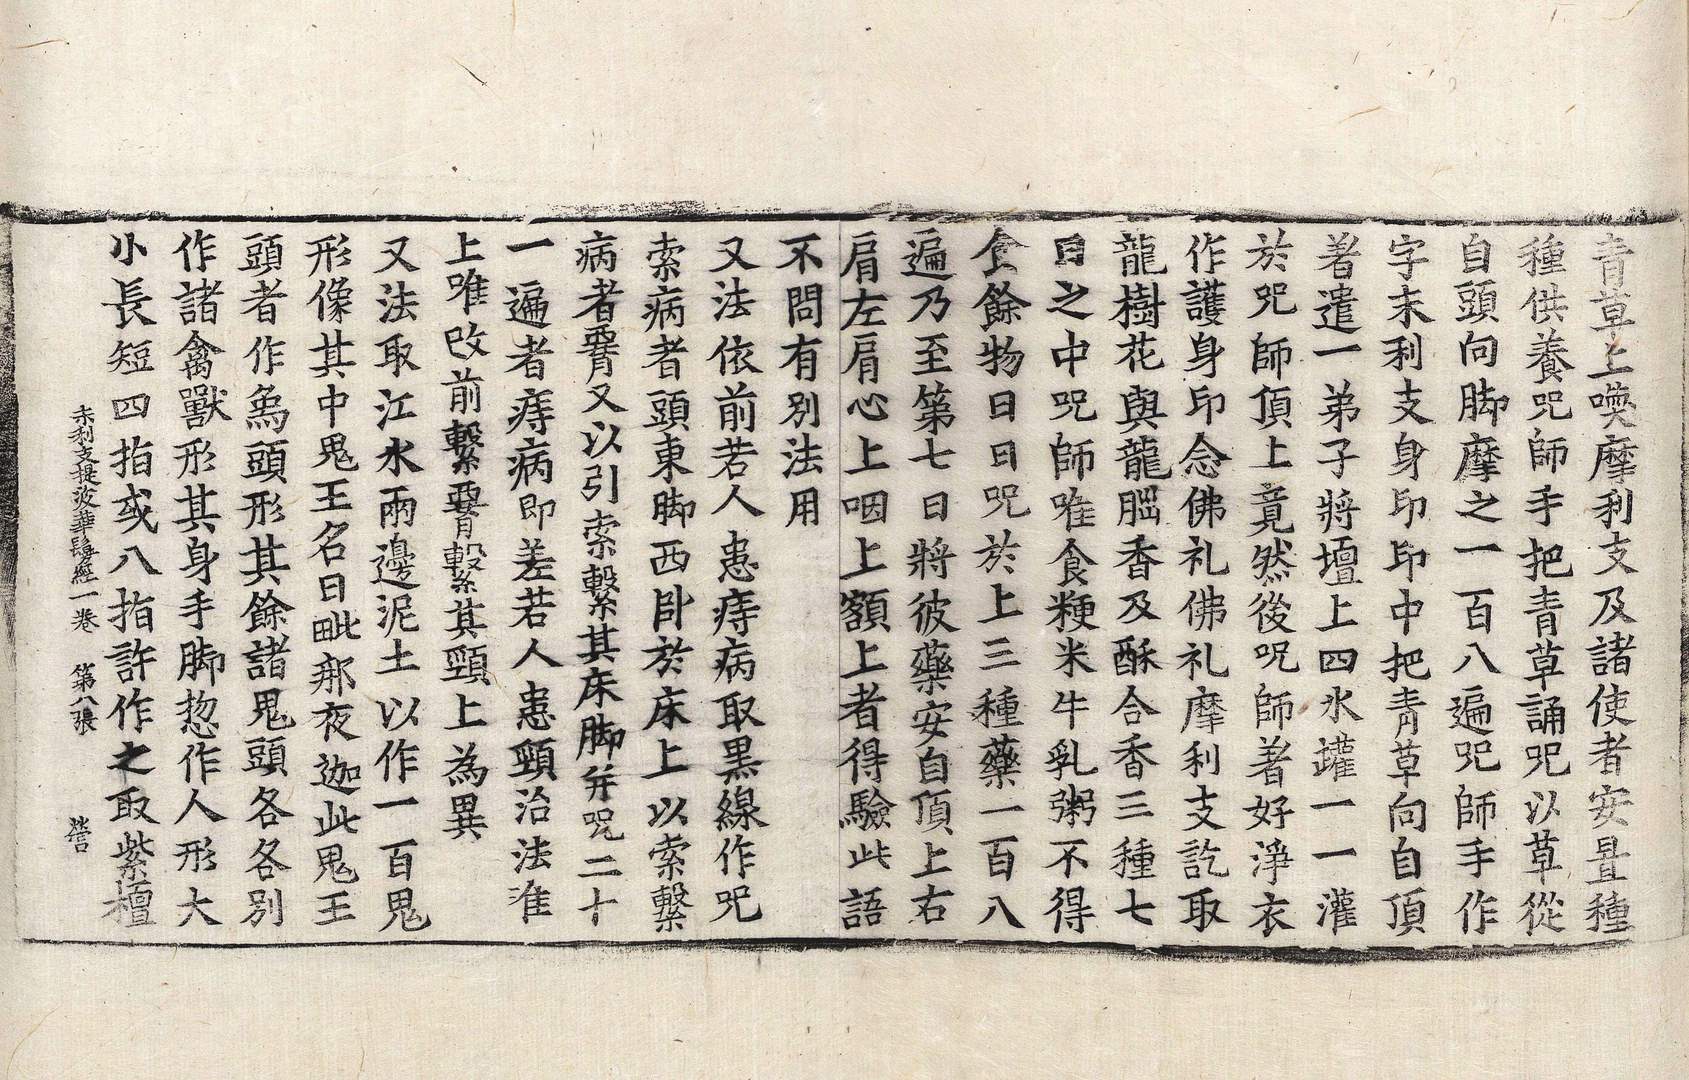 青草上喚摩利支及諸使者安置種
種供養咒師手把青草誦咒以草從
自頭向脚摩之一百八遍咒師手作
字末利支身印印中把青草向自頂
著遣一弟子將壇上四水罐一一灌
於咒師頂上竟然後咒師著好淨衣
作護身印念佛礼佛礼摩利支訖取
龍樹花與龍腦香及酥合香三種七
日之中咒師唯食粳米牛乳粥不得
食餘物日日日咒於上三種藥一百八
遍乃至第七日將彼藥安自頂上右
肩左肩心上咽上額上者得驗此語
不問有別法用
又法依前若人患痔病取黒線作咒
索病者頭東脚西卧於床上以索繫
病者罥又以引索繫其床脚并咒二十
一遍者痔病即差若人患頸治法准
上唯改前繫罥繫其頸上為異
又法取江水兩邊泥土以作一百鬼
形像其中鬼王名曰毗那夜迦此鬼王
頭者作為頭形其餘諸鬼頭各各別
作諸禽獸形其身手脚惣作人形大
小長短四指或八指許作之取紫檀
末利支提婆華鬘經一卷 第八張 營